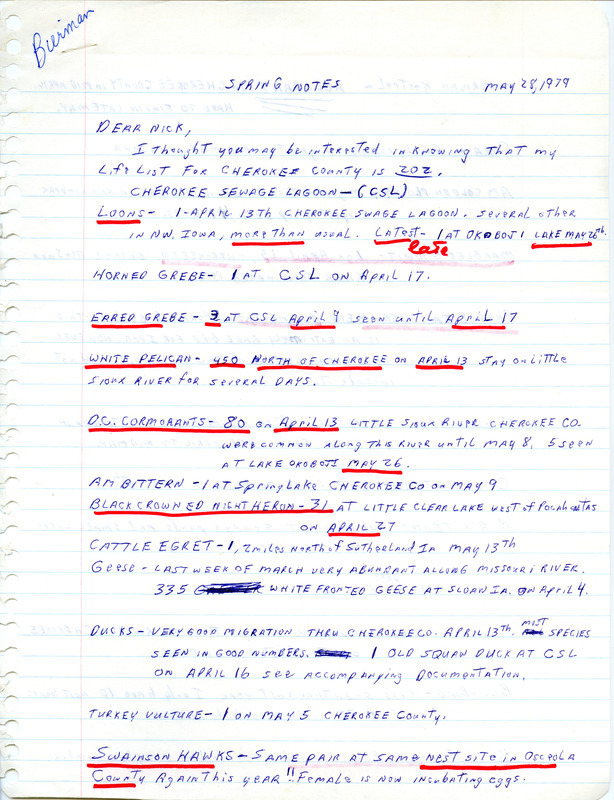 Bierman
SPRING NOTES MAY 28, 1979
DEAR NICK,
I thought you may be interested in knowing that my
Life List for CHEROKEE COUNTY is 202.
CHEROKEE SEWAGE LAGOON - (CSL)
LOONS - 1 - APRIL 13th CHEROKEE SWAGE LAGOON. SEVERAL OTHER
IN N.W. IOWA, MORE THAN USUAL. LATEST - 1 AT OKOBOJI LAKE MAY 26th.
late
HORNED GREBE - 1 AT CSL ON APRIL 17.
EARED GREBE - 2 AT CSL APRIL 9 SEEN UNTIL APRIL 17
WHITE PELICAN - 450 NORTH OF CHEROKEE ON APRIL 13 STAY ON LITTLE
SIOUX RIVER FOR SEVERAL DAYS.
D.C. CORMORANTS - 80 ON APRIL 13 LITTLE SIOUX RIVER CHEROKEE CO.
WERE COMMON ALONG THIS RIVER UNTIL MAY 8, 5 SEEN
AT LAKE OKOBOJI MAY 26.
AM BITTERN - 1 AT Spring LAKE CHEROKEE CO ON MAY 9
BLACK CROWNED NIGHT HERON - 31 AT LITTLE CLEAR LAKE WEST OF POCAHONTAS
ON APRIL 27
CATTLE EGRET - 1, 2 miles NORTH of Sutherland Ia MAY 13th
Geese - LAST WEEK OF MARCH VERY ABUNDANT ALLONG MISSOURI RIVER.
335 WHITE FRONTED GEESE AT SLOAN IA. ON April 4.
DUCKS - VERY GOOD MIGRATION THRU CHEROKEE CO. APRIL 13th. MOST SPECIES
SEEN IN GOOD NUMBERS. 1 OLD SQUAW DUCK AT CSL
ON APRIL 16 SEE ACCOMPANYING DOCUMENTATION.
TURKEY VULTURE - 1 ON MAY 5 CHEROKEE COUNTY.
SWAINSON HAWKS - SAME PAIR AT SAME NEST SITE IN OSCEOLA
COUNTY AGAIN THIS YEAR!! FEMALE IS NOW INCUBATING eggs.